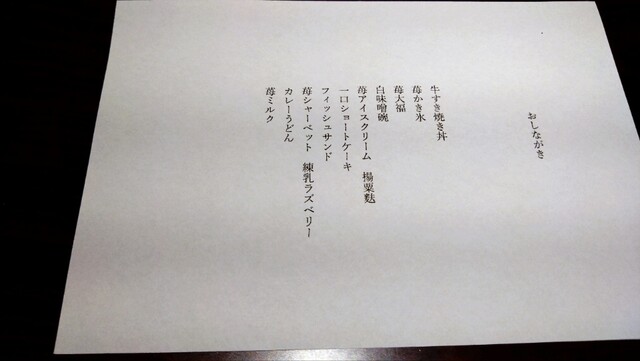 おしながき
牛すき焼き丼
苺かき氷
苺大福
白味噌碗
苺アイスクリーム　揚粟麩
一口ショートケーキ
フィッシュサンド
苺シャーベット　練乳ラズベリー
カレーうどん
苺ミルク